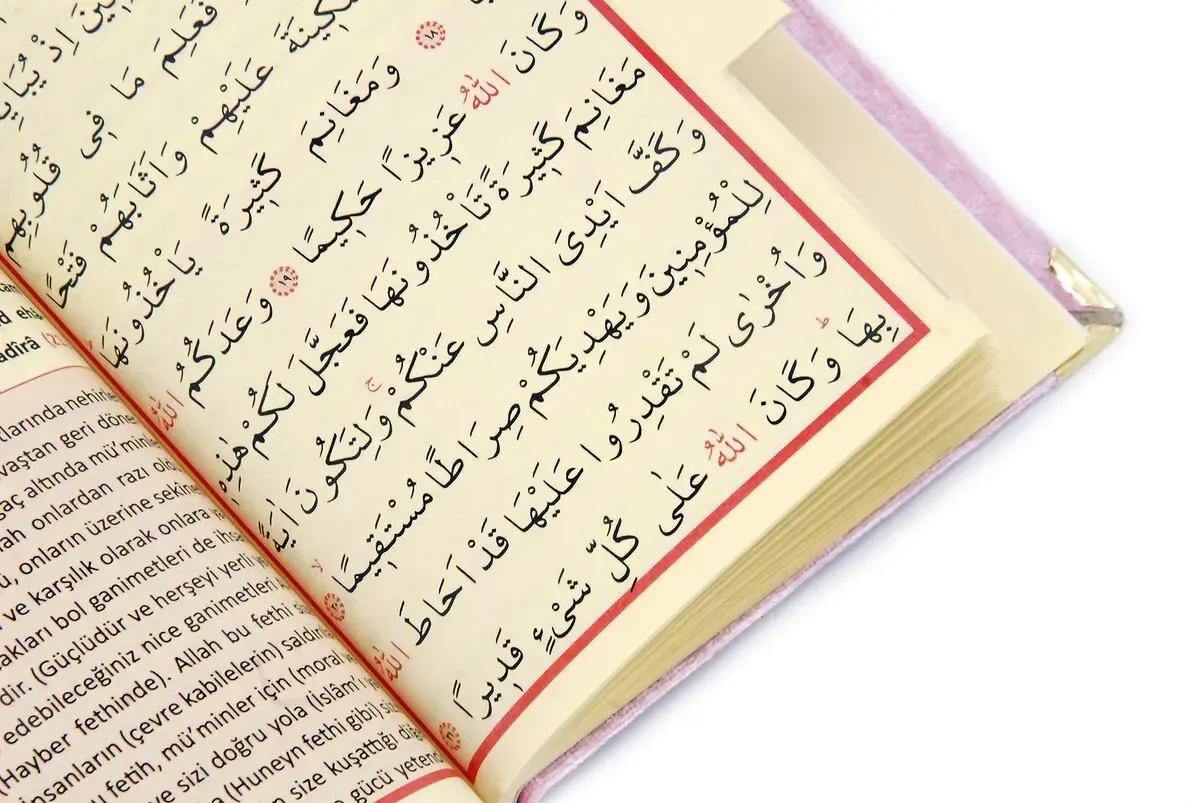 اِذْ
فَعَلِمَ مَا فِى قُلُوبِهِمْ
عَلَيْهِمْ وَاَثَابَهُمْ فَتْحًا
١٨ وَمَغَانِمَ كَثِيرَةً يَاْخُذُونَهَا ط
وَكَانَ اللّٰهُ عَزِيزًا حَكِيمًا ١٩ وَعَدَكُمُ اللّٰهُ
مَغَانِمَ كَثِيرَةً تَاْخُذُونَهَا فَعَجَّلَ لَكُمْ هٰذِهِ
وَكَفَّ اَيْدِىَ النَّاسِ عَنْكُمْ ج وَلِتَكُونَ اٰيَةً
لِلْمُؤْمِنِينَ وَيَهْدِيَكُمْ صِرَاطًا مُسْتَقِيمًا لا ٢٠
وَاُخْرٰى لَمْ تَقْدِرُوا عَلَيْهَا قَدْ اَحَاطَ اللّٰهُ
بِهَا ط وَكَانَ اللّٰهُ عَلٰى كُلِّ شَىْءٍ قَدِيرًا ٢١
ehâ
adîrâ
larında nehirle
vaştan geri döne
ğaç altında mü'minle
lah onlardan razı old
ü, onların üzerine sekîne
ve karşılık olarak onlara
akları bol ganimetleri de ihsa
dir. (Güçlüdür ve herşeyi yerli ye
edebileceğiniz nice ganimetleri
(Hayber fethinde). Allah bu fethi si
insanların (çevre kabilelerin) saldırıla
u fetih, mü'minler için (moral ve
ve sizi doğru yola (İslâm'ı
(Huneyn fethi gibi) siz
n size kuşattığı diğe
gücü yetend